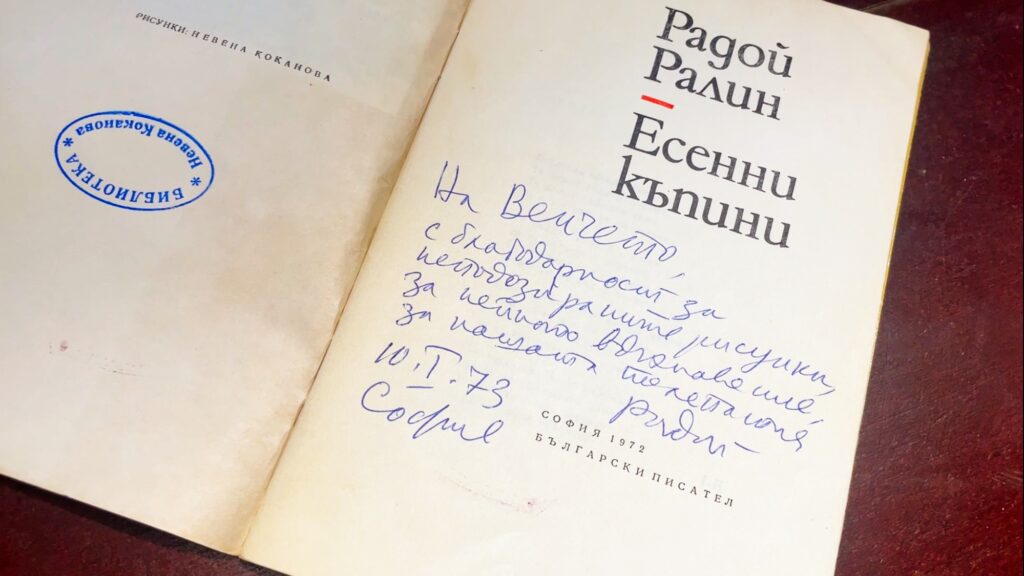 РИСУНКИ: НЕВЕНА КОКАНОВА
* БИБЛИОТЕКА *
Невена Коканова
Радой
Ралин
Есенни
къпини
На Венчето,
с благодарност за
неподозираните рисунки,
за нейното вдъхновение
за нашата
10.I.73
София
Радой
СОФИЯ 1972
БЪЛГАРСКИ ПИСАТЕЛ